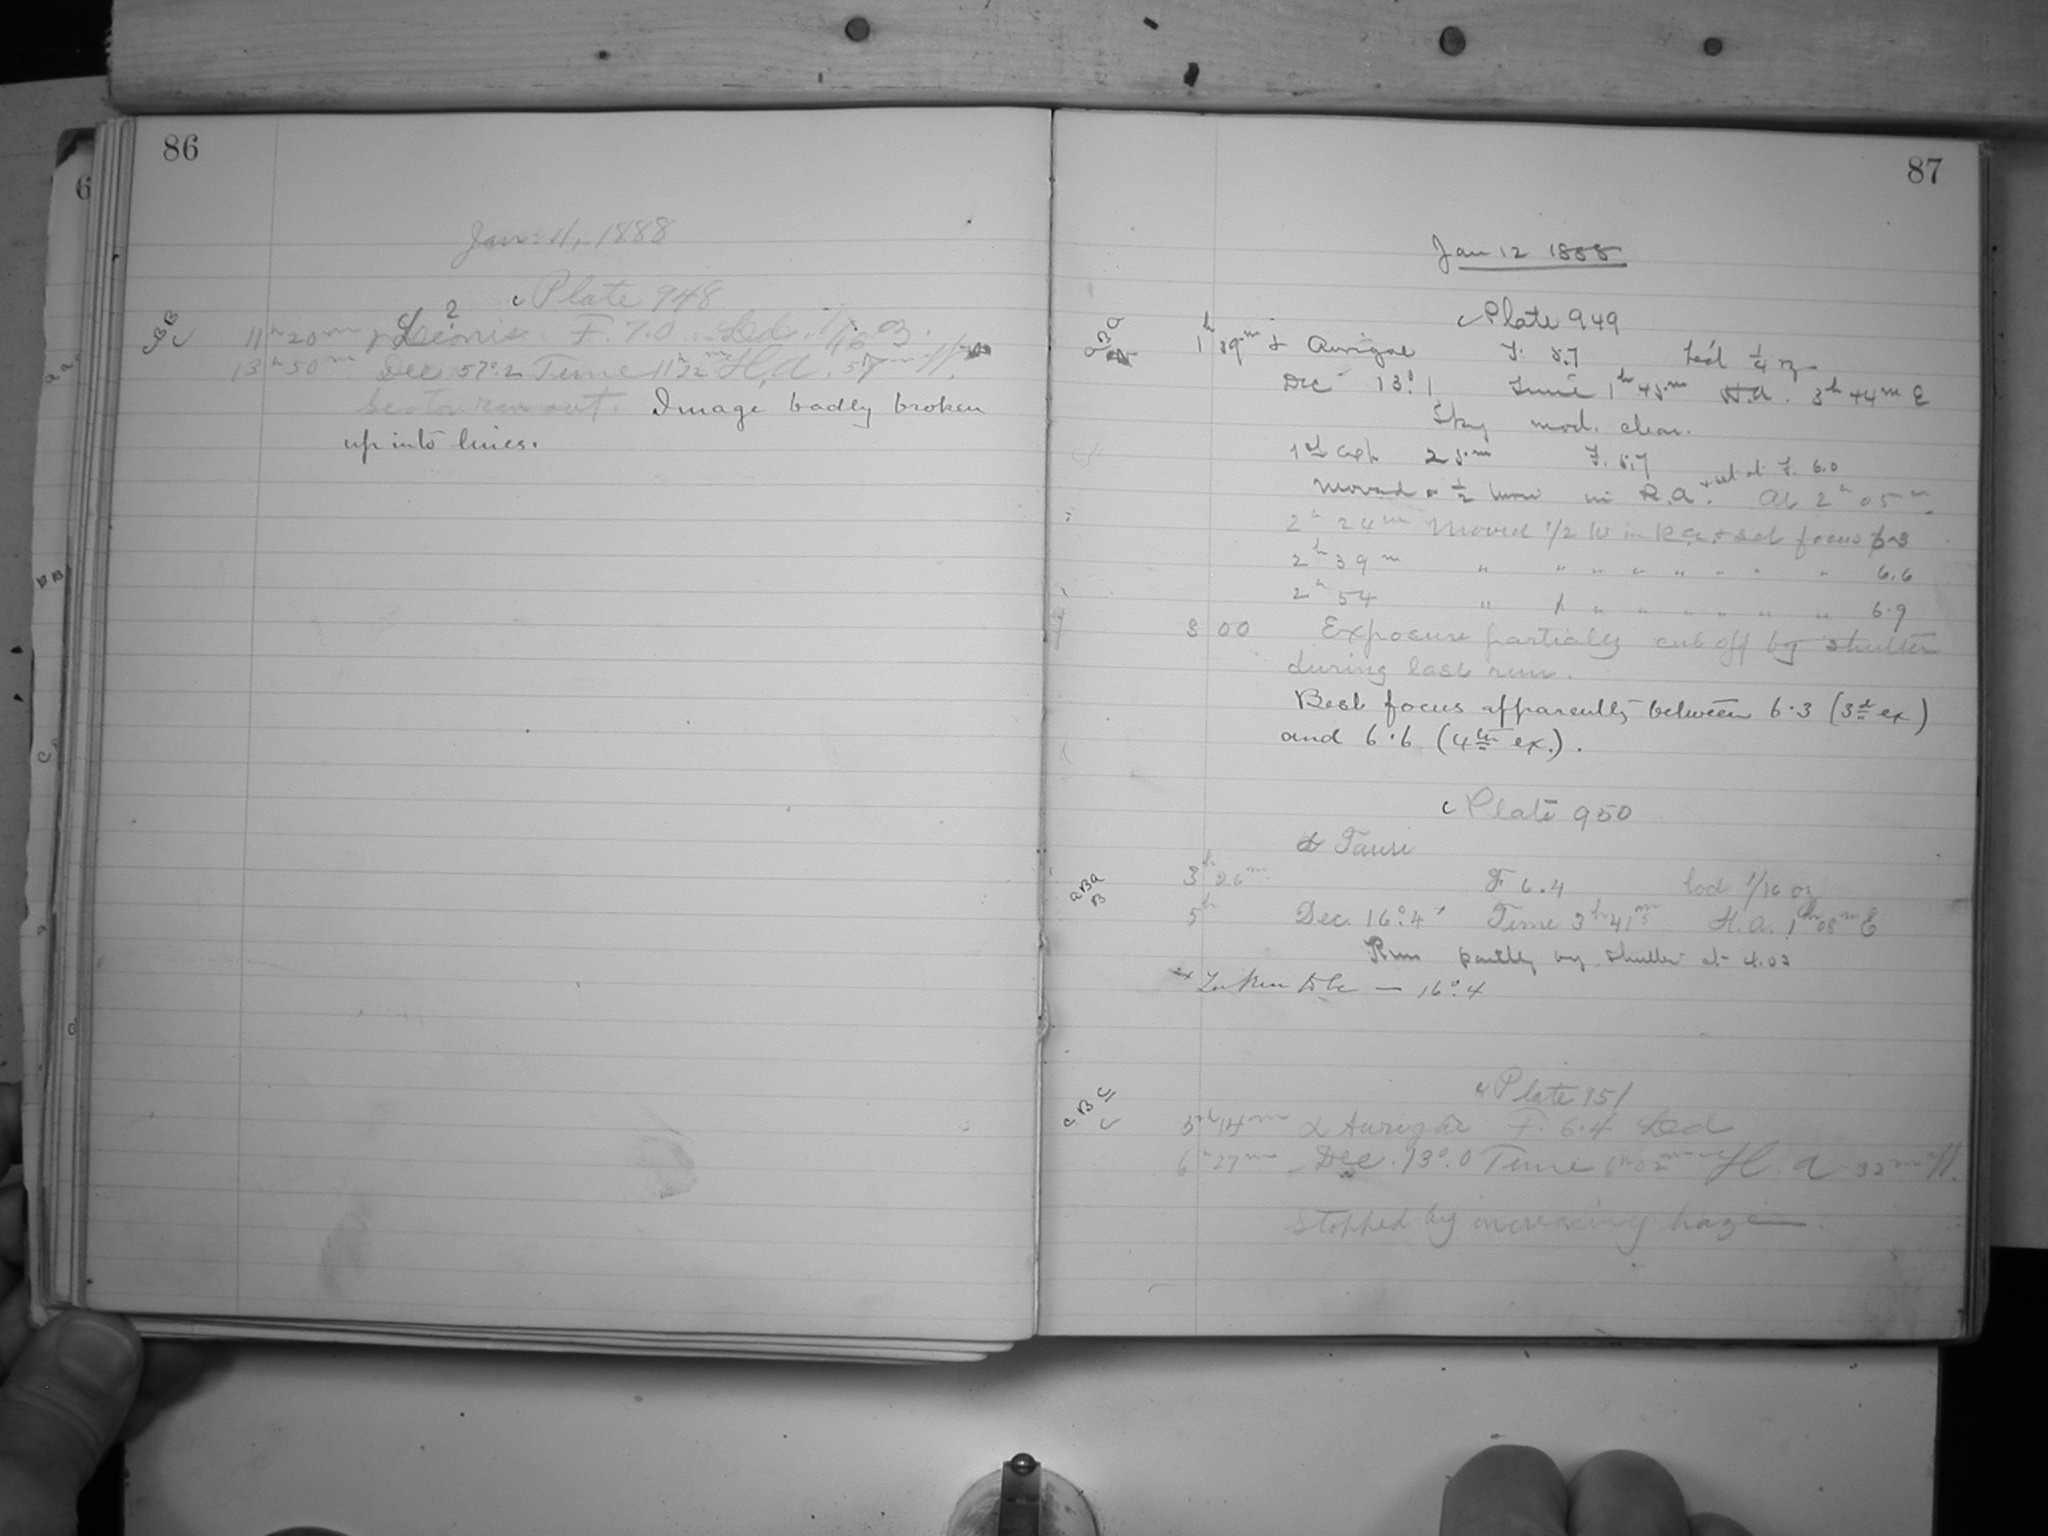 86
Jan. 11, 1888
c Plate 948
11h 20m Leonis F. 7.0 Led. 1/16 oz.
13h 50m Dec 57°.2 Time 11h 22m H.A. 57m
Sector ran out. Image badly broken
up into lines.
87
Jan 12 1888
c Plate 949
1h 39m α Aurigae F. 5.7 Led 1/4 oz
Dec 13°.1 Time 1h 45m H.A. 3h 44m E
Sky mod. clear.
1st exp 25m F. 5.7
Moved 1/2 in R.A. + set at F. 6.0 At 2h 05m
2h 24m Moved 1/2 W in R.A. + set focus 6.3
2h 39m " " " " " " " " 6.6
2h 54 " 1 " " " " " " 6.9
3 00 Exposure partially cut off by shutter
during last run.
Best focus apparently between 6.3 (3d ex)
and 6.6 (4th ex.).
c Plate 950
α Tauri
3h 26m F 6.4 Led 1/16 oz
5h Dec. 16°.4 Time 3h 41m H.A. 1h 08m E
Run partly by shutter at 4.02
16°.4
c Plate 951
5h 14m α Aurigae F. 6.4 Led
6h 27m Dec. 13°.0 Time 6h 02m H.A 32m W.
Stopped by increasing haze.